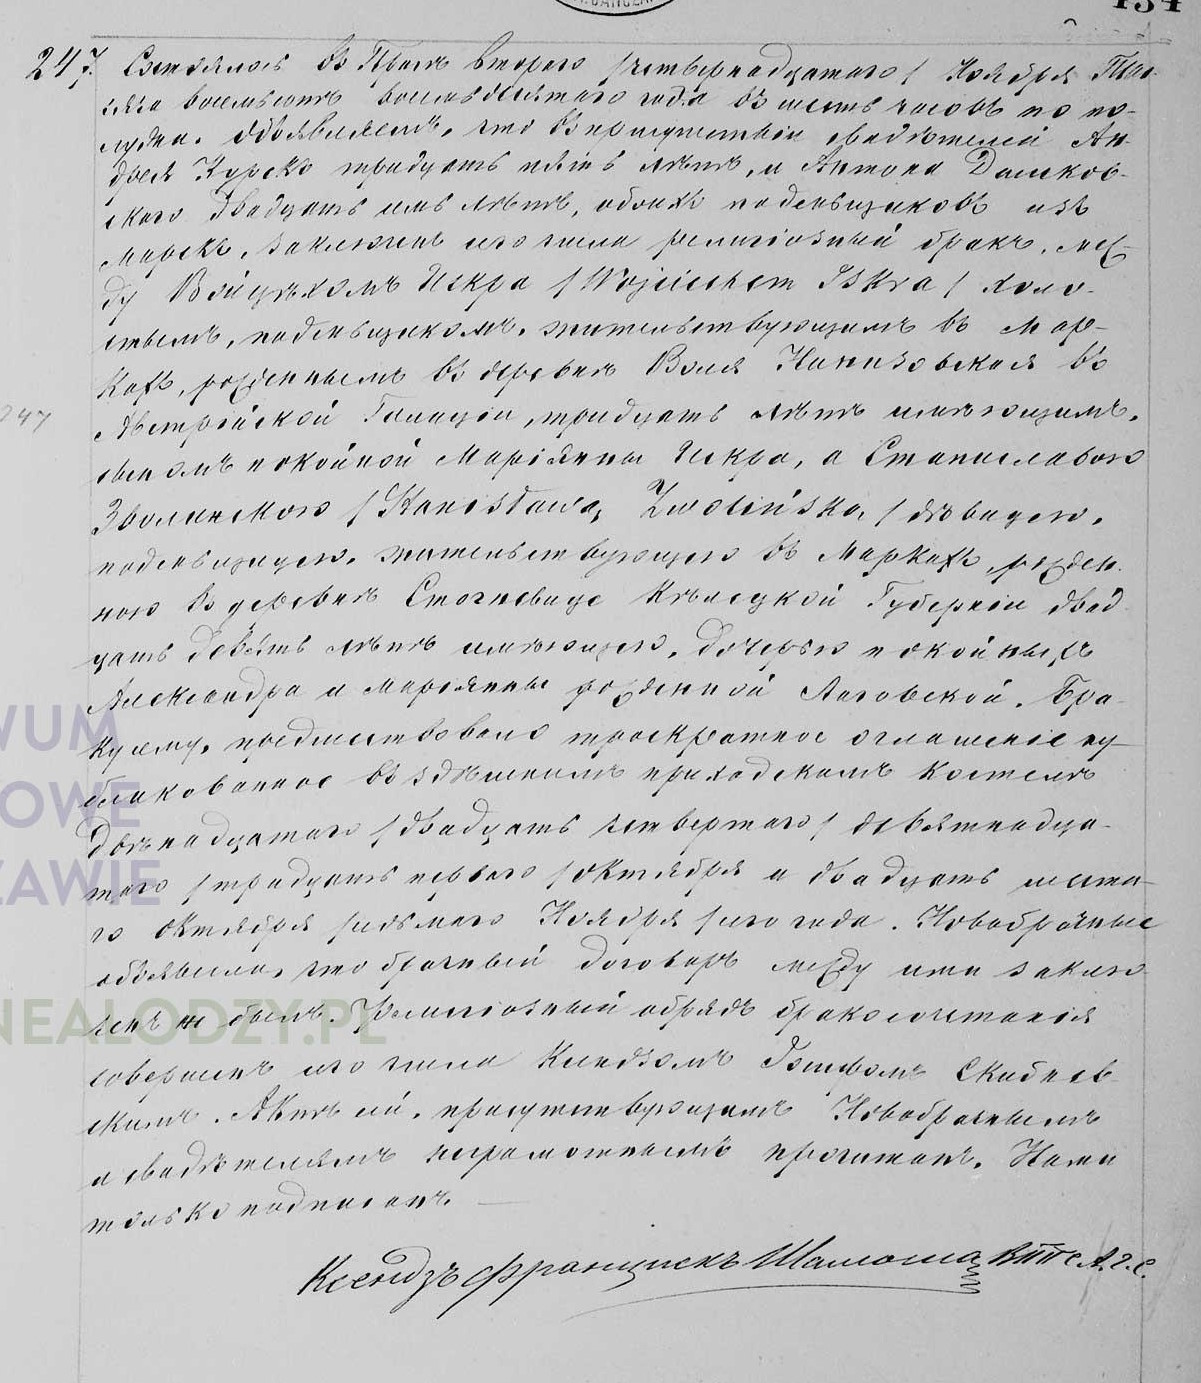 134
247. Состоялось въ Праге второго /четырнадцатаго/ Ноября Тыс-
яча восемьсотъ восемьдесятаго года въ шесть часовъ по по-
лудни. Объявляемъ, что въ присутствіи свидѣтелей Ан-
дрея Курско тридцать пять лѣтъ, и Антона Дашков-
скаго двадцать лѣтъ, обоихъ поденьщиковъ изъ
Марокъ, заключенъ сего числа религіозный бракъ, меж-
ду Войцѣхомъ Искра /Wojciechem Iskra/ холо-
стымъ, поденьщикомъ, жительствующимъ въ Мар-
кахъ, рожденнымъ въ деревнѣ Воля въ
247
Австрійской Галиціи, тридцать лѣтъ имѣющимъ,
сыномъ покойной Маріянны Искра, а Станиславою
Зволинскою /Stanisławą Zwolińską/ дѣвицею,
поденьщицею, жительствующею въ Маркахъ, рожден-
ною въ деревнѣ Стогневице Кѣлецкой Губерніи двад-
цать девять лѣтъ имѣющею, дочерью покойныхъ
Александра и Маріянны рожденной Лаговской. Бра-
ку сему предшествовало троекратное оглашеніе пу-
бликованное въ здѣшнемъ приходскомъ костелѣ
двѣнадцатаго /двадцать четвертаго/ девятнадца-
таго /тридцать перваго/ Октября и двадцать шеста-
го Октября /седьмаго Ноября/ сего года. Новобрачные
объявили, что брачный договоръ между ими заклю-
ченъ не былъ. Религіозный обрядъ бракосочетанія
совершенъ сего числа Ксендзомъ Іосифомъ Скибнев-
скимъ. Актъ сей, присутствующимъ Новобрачнымъ
и свидѣтелямъ неграмотнымъ прочитанъ, Нами
только подписанъ.
Ксендзъ Францискъ Шамота А. Г. С.
WUM
OWE
ZAWIE
NEALODZY.PL